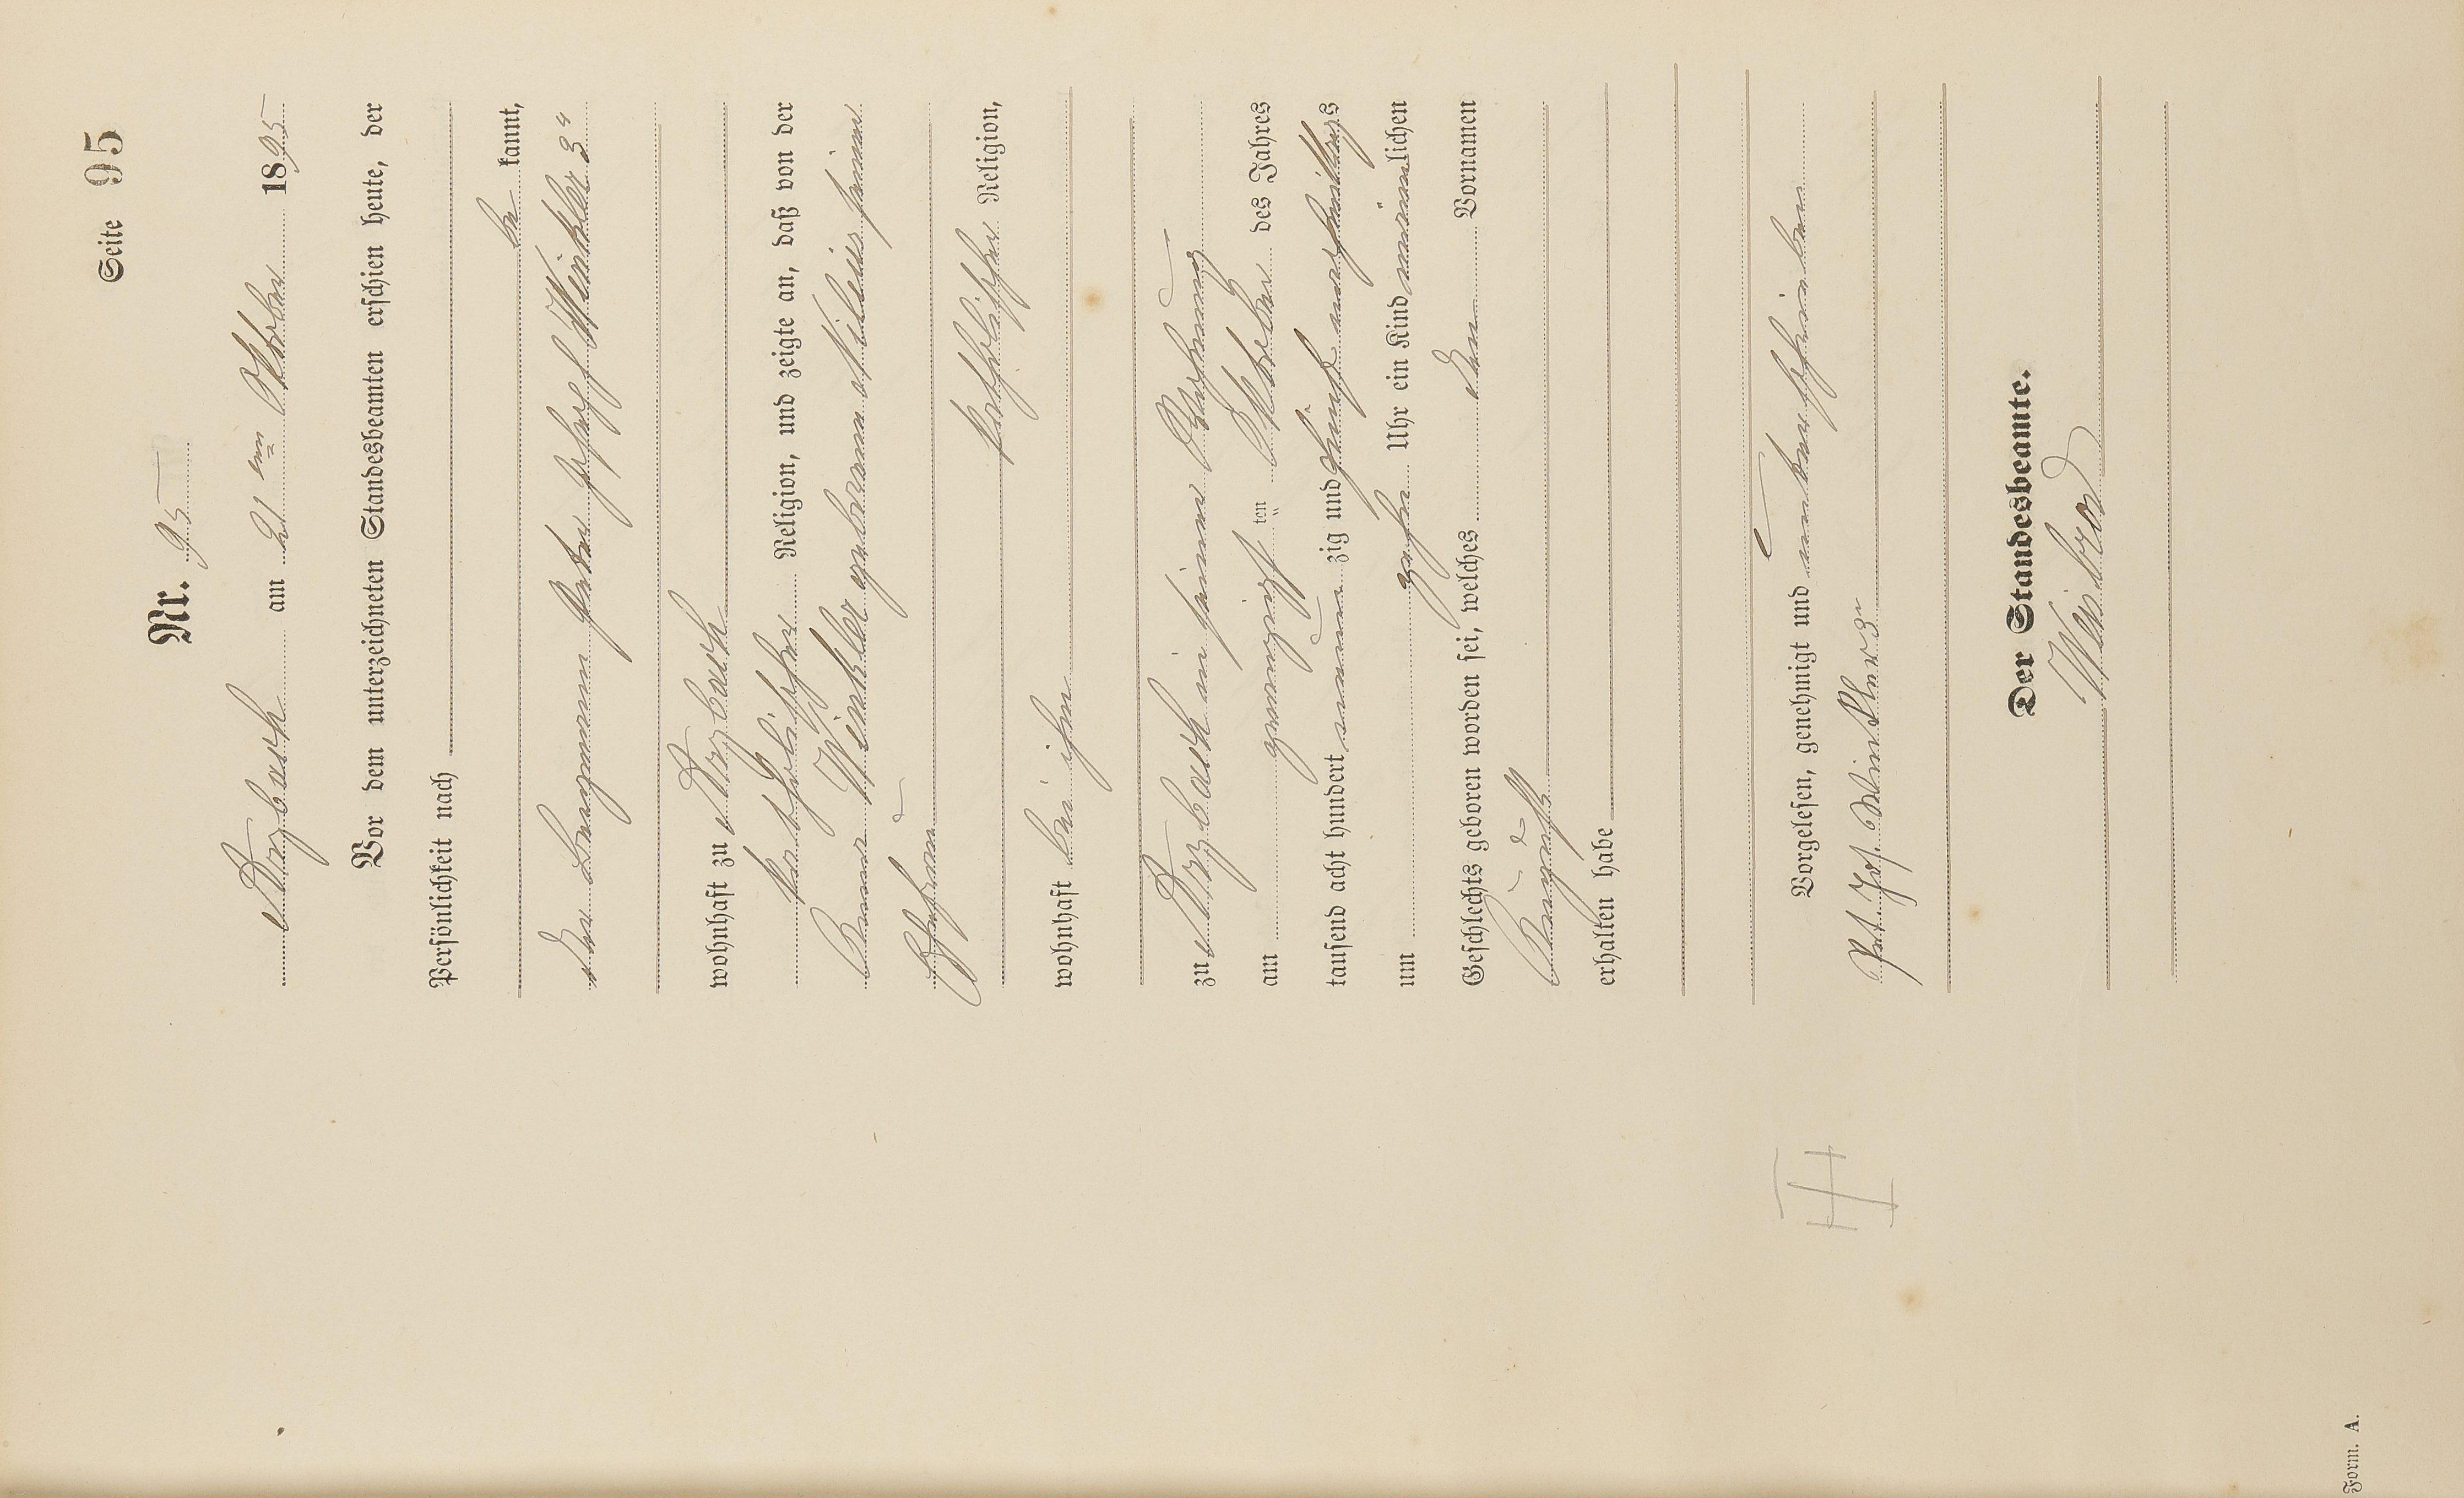 Seite 95
Nr. 95
Arzbach am 21ten Oktober 1895
Vor dem unterzeichneten Standesbeamten erschien heute, der
Persönlichkeit nach
be kannt,
der Bergmann Peter Josef Winkler 3r
wohnhaft zu Arzbach
katholischer Religion, und zeigte an, daß von der
Anna Winkler geborene seiner
Ehefrau
katholischer Religion,
wohnhaft bei ihm
zu Arzbach in seiner Wohnung
am zwanzigsten Oktober des Jahres
tausend acht hundert neunzig und fünf nachmittags
um zehn Uhr ein Kind männlichen
Geschlechts geboren worden sei, welches den Vornamen
August
erhalten habe
Vorgelesen, genehmigt und unterschrieben
Pet. Jos. Winkler 3r
Der Standesbeamte.
Form. A.